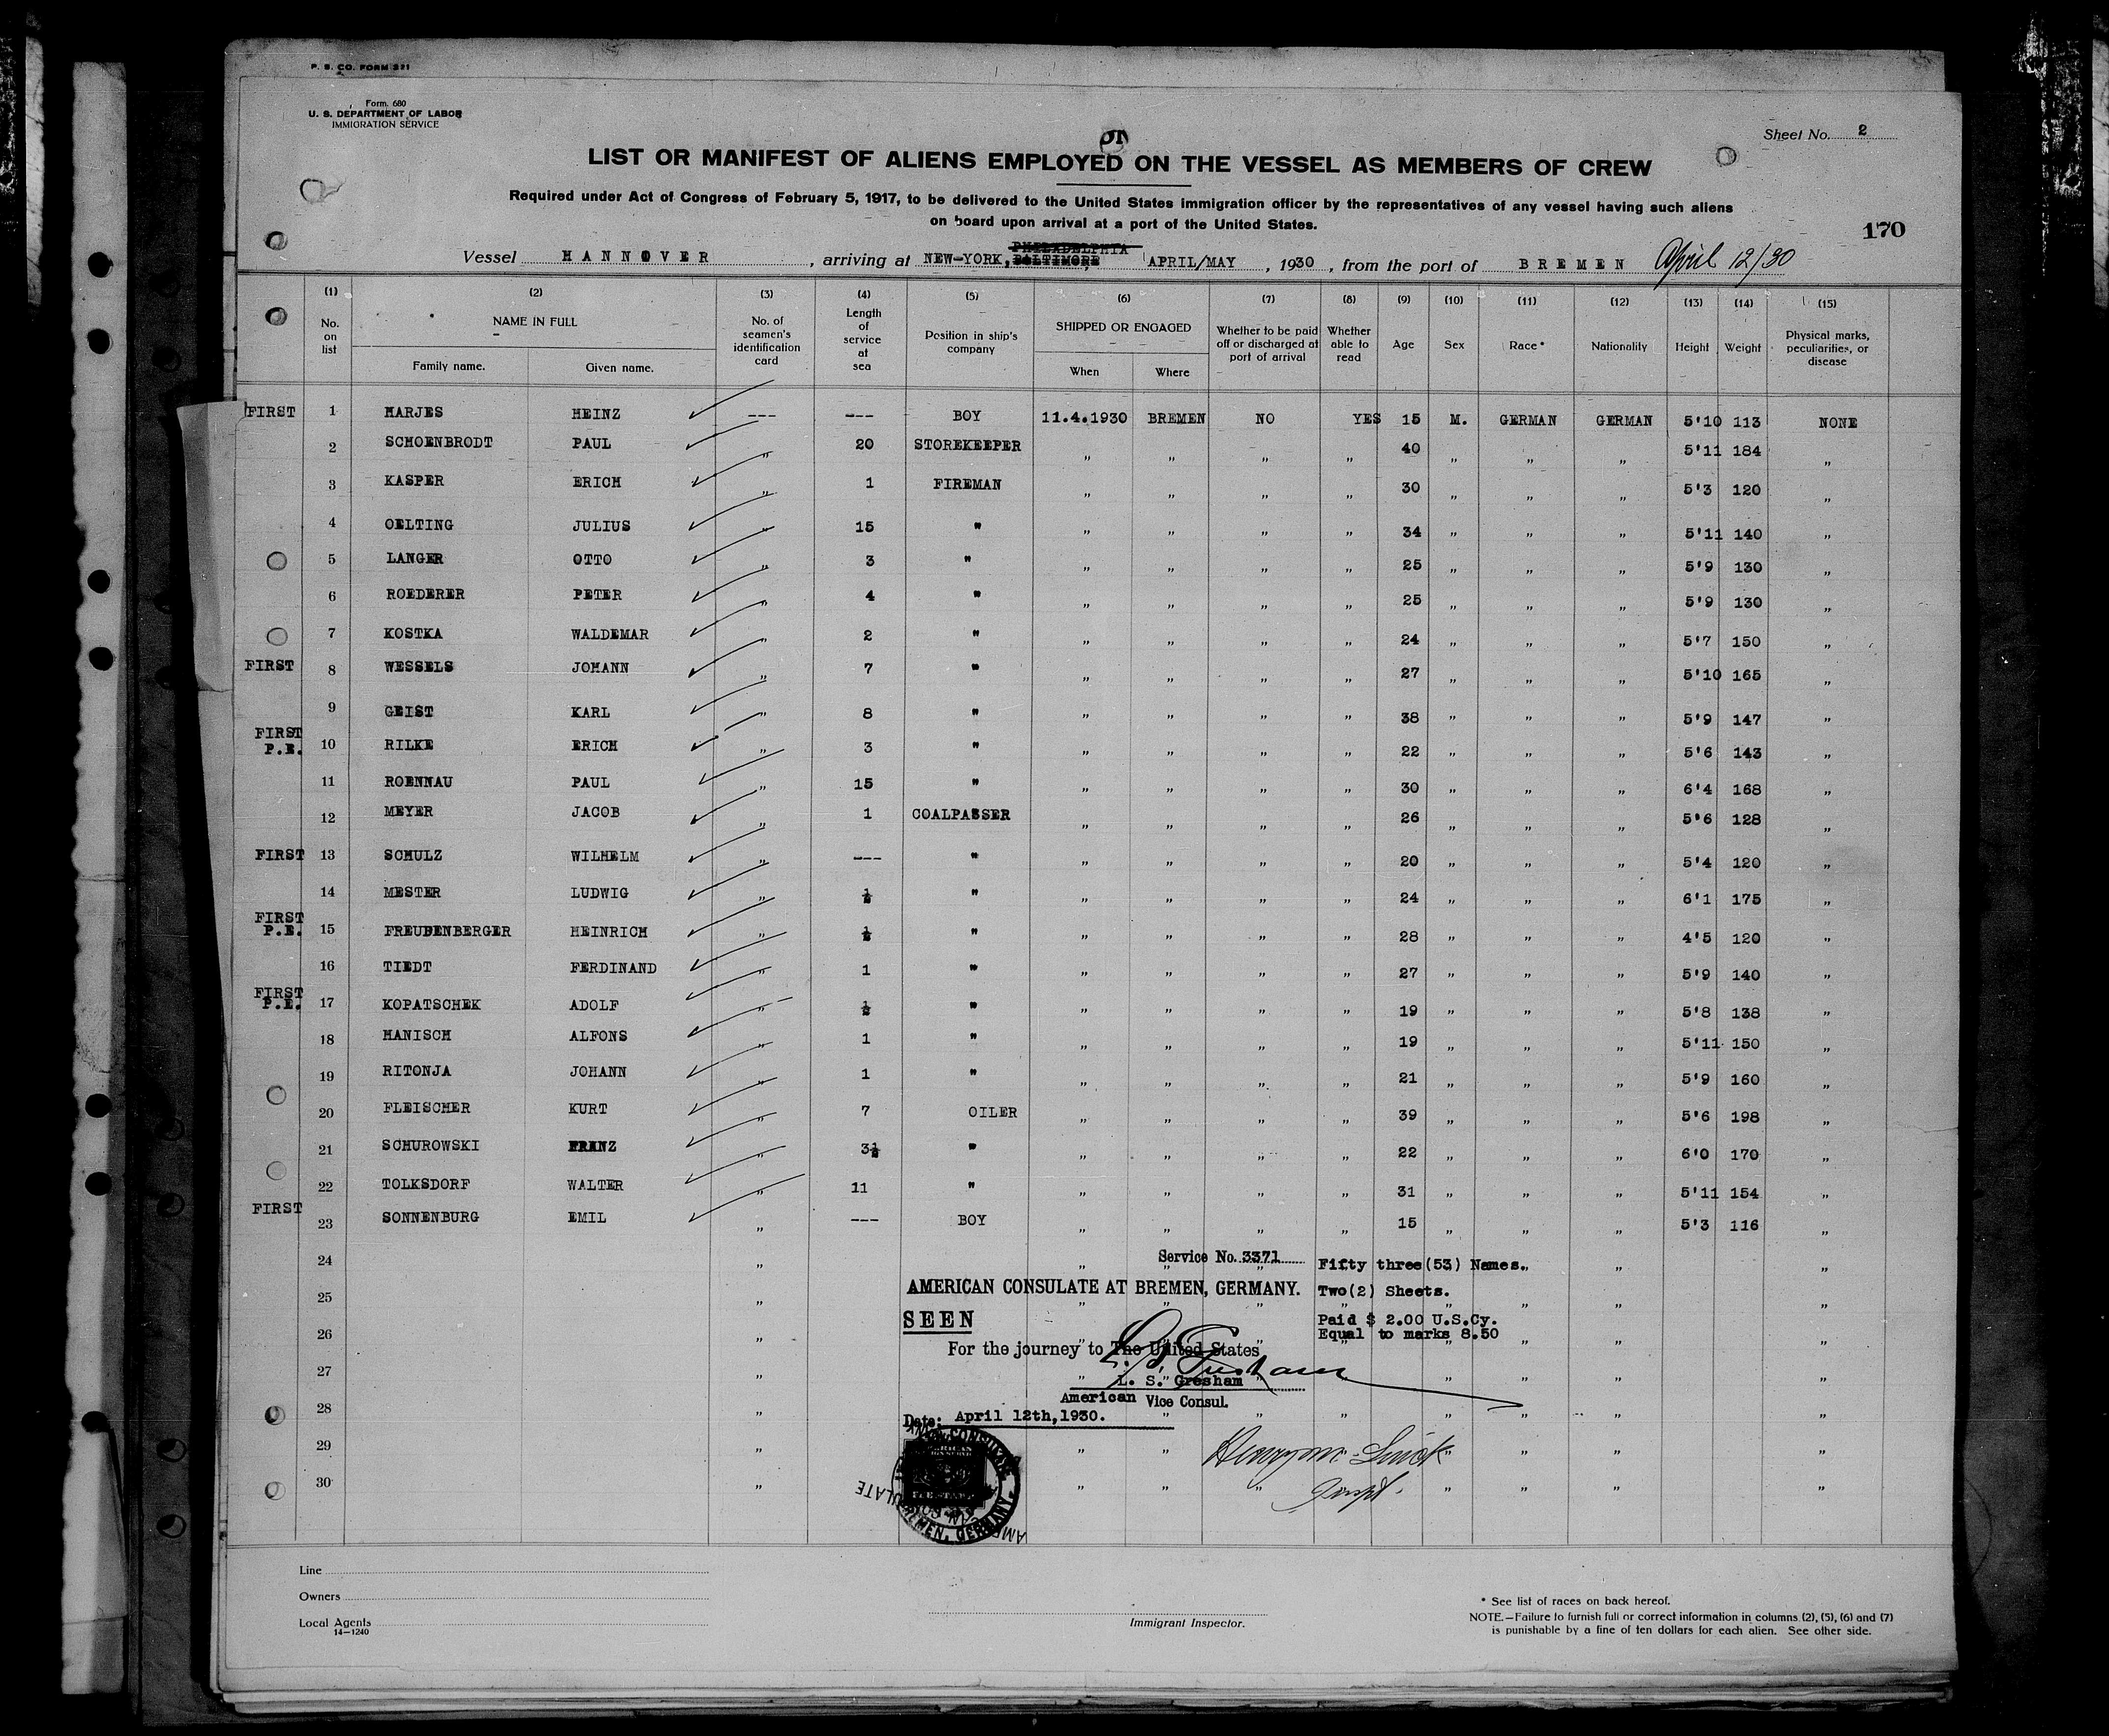 P. S. CO. FORM 321
Form 680
U. S. DEPARTMENT OF LABOR
IMMIGRATION SERVICE
Sheet No. 2
LIST OR MANIFEST OF ALIENS EMPLOYED ON THE VESSEL AS MEMBERS OF CREW
Required under Act of Congress of February 5, 1917, to be delivered to the United States immigration officer by the representatives of any vessel having such aliens
on board upon arrival at a port of the United States.
170
PHILADELPHIA
Vessel HANNOVER , arriving at NEW-YORK, BALTIMORE APRIL/MAY , 1930 , from the port of BREMEN April 12/30
(1) (2) (3) (4) (5) (6) (7) (8) (9) (10) (11) (12) (13) (14) (15)
No. on list NAME IN FULL Family name. Given name. No. of seamen's identification card Length of service at sea Position in ship's company SHIPPED OR ENGAGED When Where Whether to be paid off or discharged at port of arrival Whether able to read Age Sex Race* Nationality Height Weight Physical marks, peculiarities, or disease
FIRST 1 HARJES HEINZ --- --- BOY 11.4.1930 BREMEN NO YES 15 M. GERMAN GERMAN 5'10 113 NONE
2 SCHOENBRODT PAUL " 20 STOREKEEPER " " " " 40 " " " 5'11 184 "
3 KASPER ERICH " 1 FIREMAN " " " " 30 " " " 5'3 120 "
4 OELTING JULIUS " 15 " " " " " 34 " " " 5'11 140 "
5 LANGER OTTO " 3 " " " " " 25 " " " 5'9 130 "
6 ROEDERER PETER " 4 " " " " " 25 " " " 5'9 130 "
7 KOSTKA WALDEMAR " 2 " " " " " 24 " " " 5'7 150 "
FIRST 8 WESSELS JOHANN " 7 " " " " " 27 " " " 5'10 165 "
9 GEIST KARL " 8 " " " " " 38 " " " 5'9 147 "
FIRST P.E. 10 RILKE ERICH " 3 " " " " " 22 " " " 5'6 143 "
11 ROENNAU PAUL " 15 " " " " " 30 " " " 6'4 168 "
12 MEYER JACOB " 1 COALPASSER " " " " 26 " " " 5'6 128 "
FIRST 13 SCHULZ WILHELM " --- " " " " " 20 " " " 5'4 120 "
14 MESTER LUDWIG " ½ " " " " " 24 " " " 6'1 175 "
FIRST P.E. 15 FREUDENBERGER HEINRICH " ½ " " " " " 28 " " " 4'5 120 "
16 TIEDT FERDINAND " 1 " " " " " 27 " " " 5'9 140 "
FIRST P.E. 17 KOPATSCHEK ADOLF " ½ " " " " " 19 " " " 5'8 138 "
18 HANISCH ALFONS " 1 " " " " " 19 " " " 5'11 150 "
19 RITONJA JOHANN " 1 " " " " " 21 " " " 5'9 160 "
20 FLEISCHER KURT " 7 OILER " " " " 39 " " " 5'6 198 "
21 SCHUROWSKI FRANZ " 3½ " " " " " 22 " " " 6'0 170 "
22 TOLKSDORF WALTER " 11 " " " " " 31 " " " 5'11 154 "
FIRST 23 SONNENBURG EMIL " --- BOY " " " " 15 " " " 5'3 116 "
24 Service No. 3371 Fifty three(53) Names.
25 AMERICAN CONSULATE AT BREMEN, GERMANY. Two(2) Sheets.
26 SEEN Paid $ 2.00 U.S.Cy.
Equal to marks 8.50
For the journey to The United States
27 L. S. Gresham
American Vice Consul.
28 Date: April 12th, 1930.
29
30
Line
Owners
Local Agents
14-1240
Immigrant Inspector.
* See list of races on back hereof.
NOTE.—Failure to furnish full or correct information in columns (2), (5), (6) and (7)
is punishable by a fine of ten dollars for each alien. See other side.